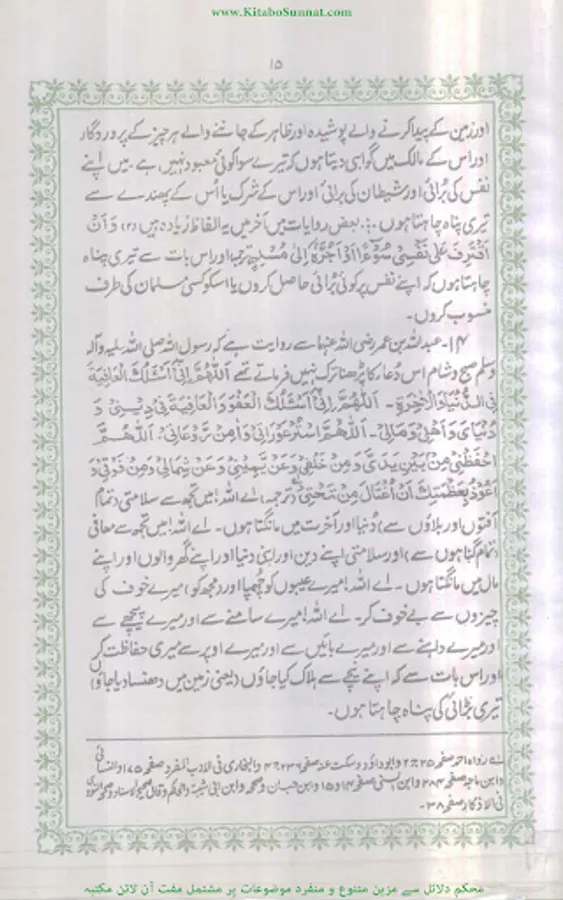 www.KitaboSunnat.com
۱۵
اور زمین کے پیدا کرنے والے پوشیدہ اور ظاہر کے جاننے والے ہر چیز کے پروردگار
اور اس کے مالک میں گواہی دیتا ہوں کہ تیرے سوا کوئی معبود نہیں ہے۔ میں اپنے
نفس کی بُرائی اور شیطان کی برائی اور اس کے شرک یا اُس کے پھندے سے
تیری پناہ چاہتا ہوں۔ بعض روایات میں آخر میں یہ الفاظ زیادہ ہیں (۲) وَاَنْ
اَقْتَرِفَ عَلٰى نَفْسِىْ سُوْٓءًا اَوْ اَجُرَّهٗ اِلٰى مُسْلِمٍ ترجمہ اور اس بات سے تیری پناہ
چاہتا ہوں کہ اپنے نفس پر کوئی بُرائی حاصل کروں یا اسکو کسی مسلمان کی طرف
منسوب کروں۔
۱۴۔ عبداللہ بن عمر رضی اللہ عنہما سے روایت ہے کہ رسول اللہ صلی اللہ علیہ وآلہ
وسلم صبح و شام اس دُعاء کا پڑھنا ترک نہیں فرماتے تھے اَللّٰهُمَّ اِنِّىْٓ اَسْئَلُكَ الْعَافِيَةَ
فِى الدُّنْيَا وَالْاٰخِرَةِ۔ اَللّٰهُمَّ اِنِّىْٓ اَسْئَلُكَ الْعَفْوَ وَالْعَافِيَةَ فِىْ دِيْنِىْ وَ
دُنْيَاىَ وَ اَهْلِىْ وَمَالِىْ۔ اَللّٰهُمَّ اسْتُرْ عَوْرَاتِىْ وَاٰمِنْ رَّوْعَاتِىْ۔ اَللّٰهُمَّ
احْفَظْنِىْ مِنْ بَيْنِ يَدَىَّ وَ مِنْ خَلْفِىْ وَعَنْ يَّمِيْنِىْ وَعَنْ شِمَالِىْ وَمِنْ فَوْقِىْ وَ
اَعُوْذُ بِعَظَمَتِكَ اَنْ اُغْتَالَ مِنْ تَحْتِىْ (ترجمہ) اے اللہ! میں تجھ سے سلامتی (تمام
آفتوں اور بلاؤں سے) دُنیا اور آخرت میں مانگتا ہوں۔ اے اللہ! میں تجھ سے معافی
(تمام گناہوں سے) اور سلامتی اپنے دین اور اپنی دنیا اور اپنے گھر والوں اور اپنے
مال میں مانگتا ہوں۔ اے اللہ! میرے عیبوں کو چھپا اور (مجھ کو) میرے خوف کی
چیزوں سے بے خوف کر۔ اے اللہ! میرے سامنے سے اور میرے پیچھے سے
اور میرے داہنے سے اور میرے بائیں سے اور میرے اوپر سے میری حفاظت کر
اور اس بات سے کہ اپنے نیچے سے ہلاک کیا جاؤں (یعنی زمین میں دھنسا دیا جاؤں)
تیری بڑائی کی پناہ چاہتا ہوں۔
لے رواہ احمد صفحہ ۲۵ ج ۲ وابوداؤد وسکت عنہ صفحہ ۲۳۶ ج ۴ والبخاری فی الادب المفرد صفحہ ۱۷۵ والنسائی
وابن ماجہ صفحہ ۲۸۴ وابن السنی صفحہ ۱۴ و ۱۵ وابن حبان وصححہ وابن ابی شیبۃ والحاکم وقال صحیح الاسناد وصححہ النووی
فی الاذکار صفحہ ۳۸۔
محکم دلائل سے مزین متنوع و منفرد موضوعات پر مشتمل مفت آن لائن مکتبہ